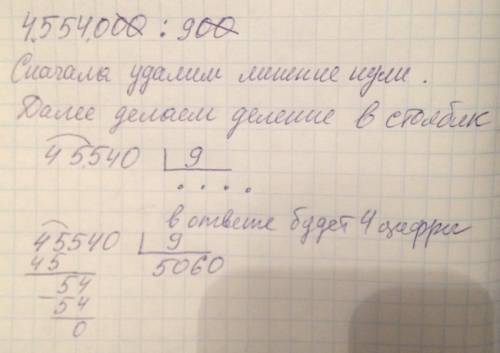 4.554.000 : 900
Сначала удалим лишние нули.
Далее делаем деление в столбик
45540 9
. . . .
в ответе будет 4 цифры
45540 9
45 5060
54
54
0